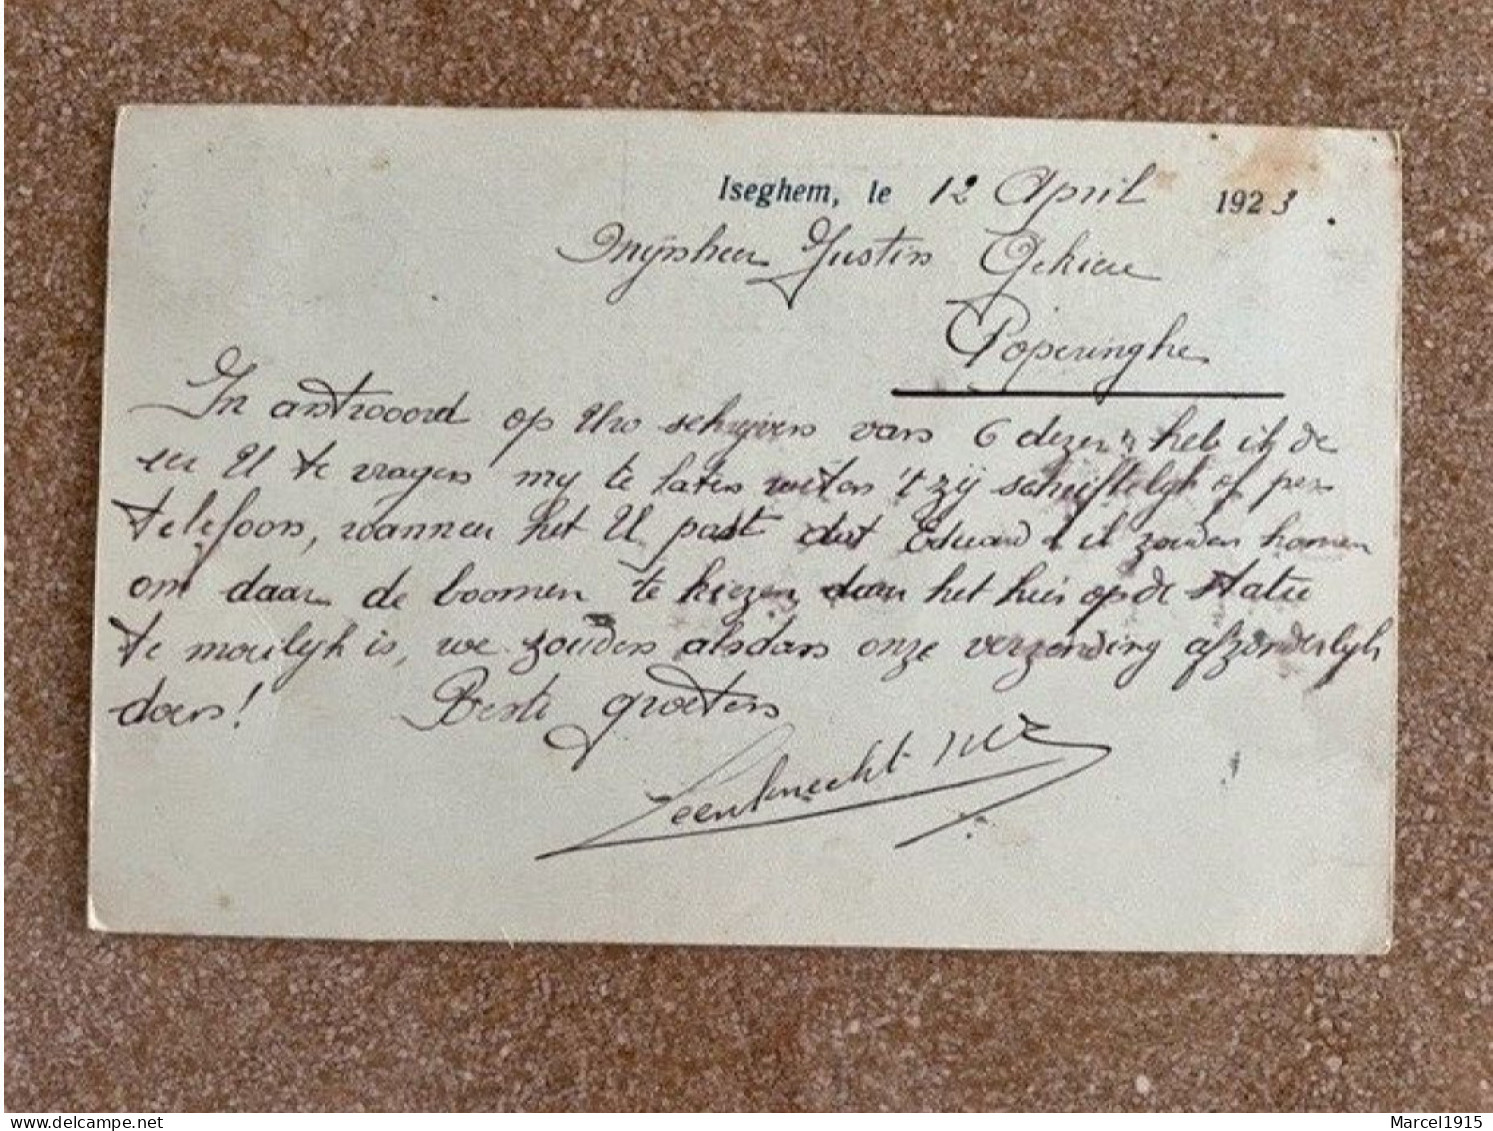 Iseghem, le 12 April 1923.
Mijnheer Justin Gekiere
Poperinghe
In antwoord op Uw schrijven van 6 dezer, heb ik de
eer U te vragen my te laten weten 't zij schriftelijk of per
telefoon, wanneer het U past dat Eduard & ik zouden komen
om daar de boomen te kiezen daar het hier op de statie
te moeilijk is, we zouden alsdan onze verzending afzonderlijk
doen! Beste groeten
Marcel1915